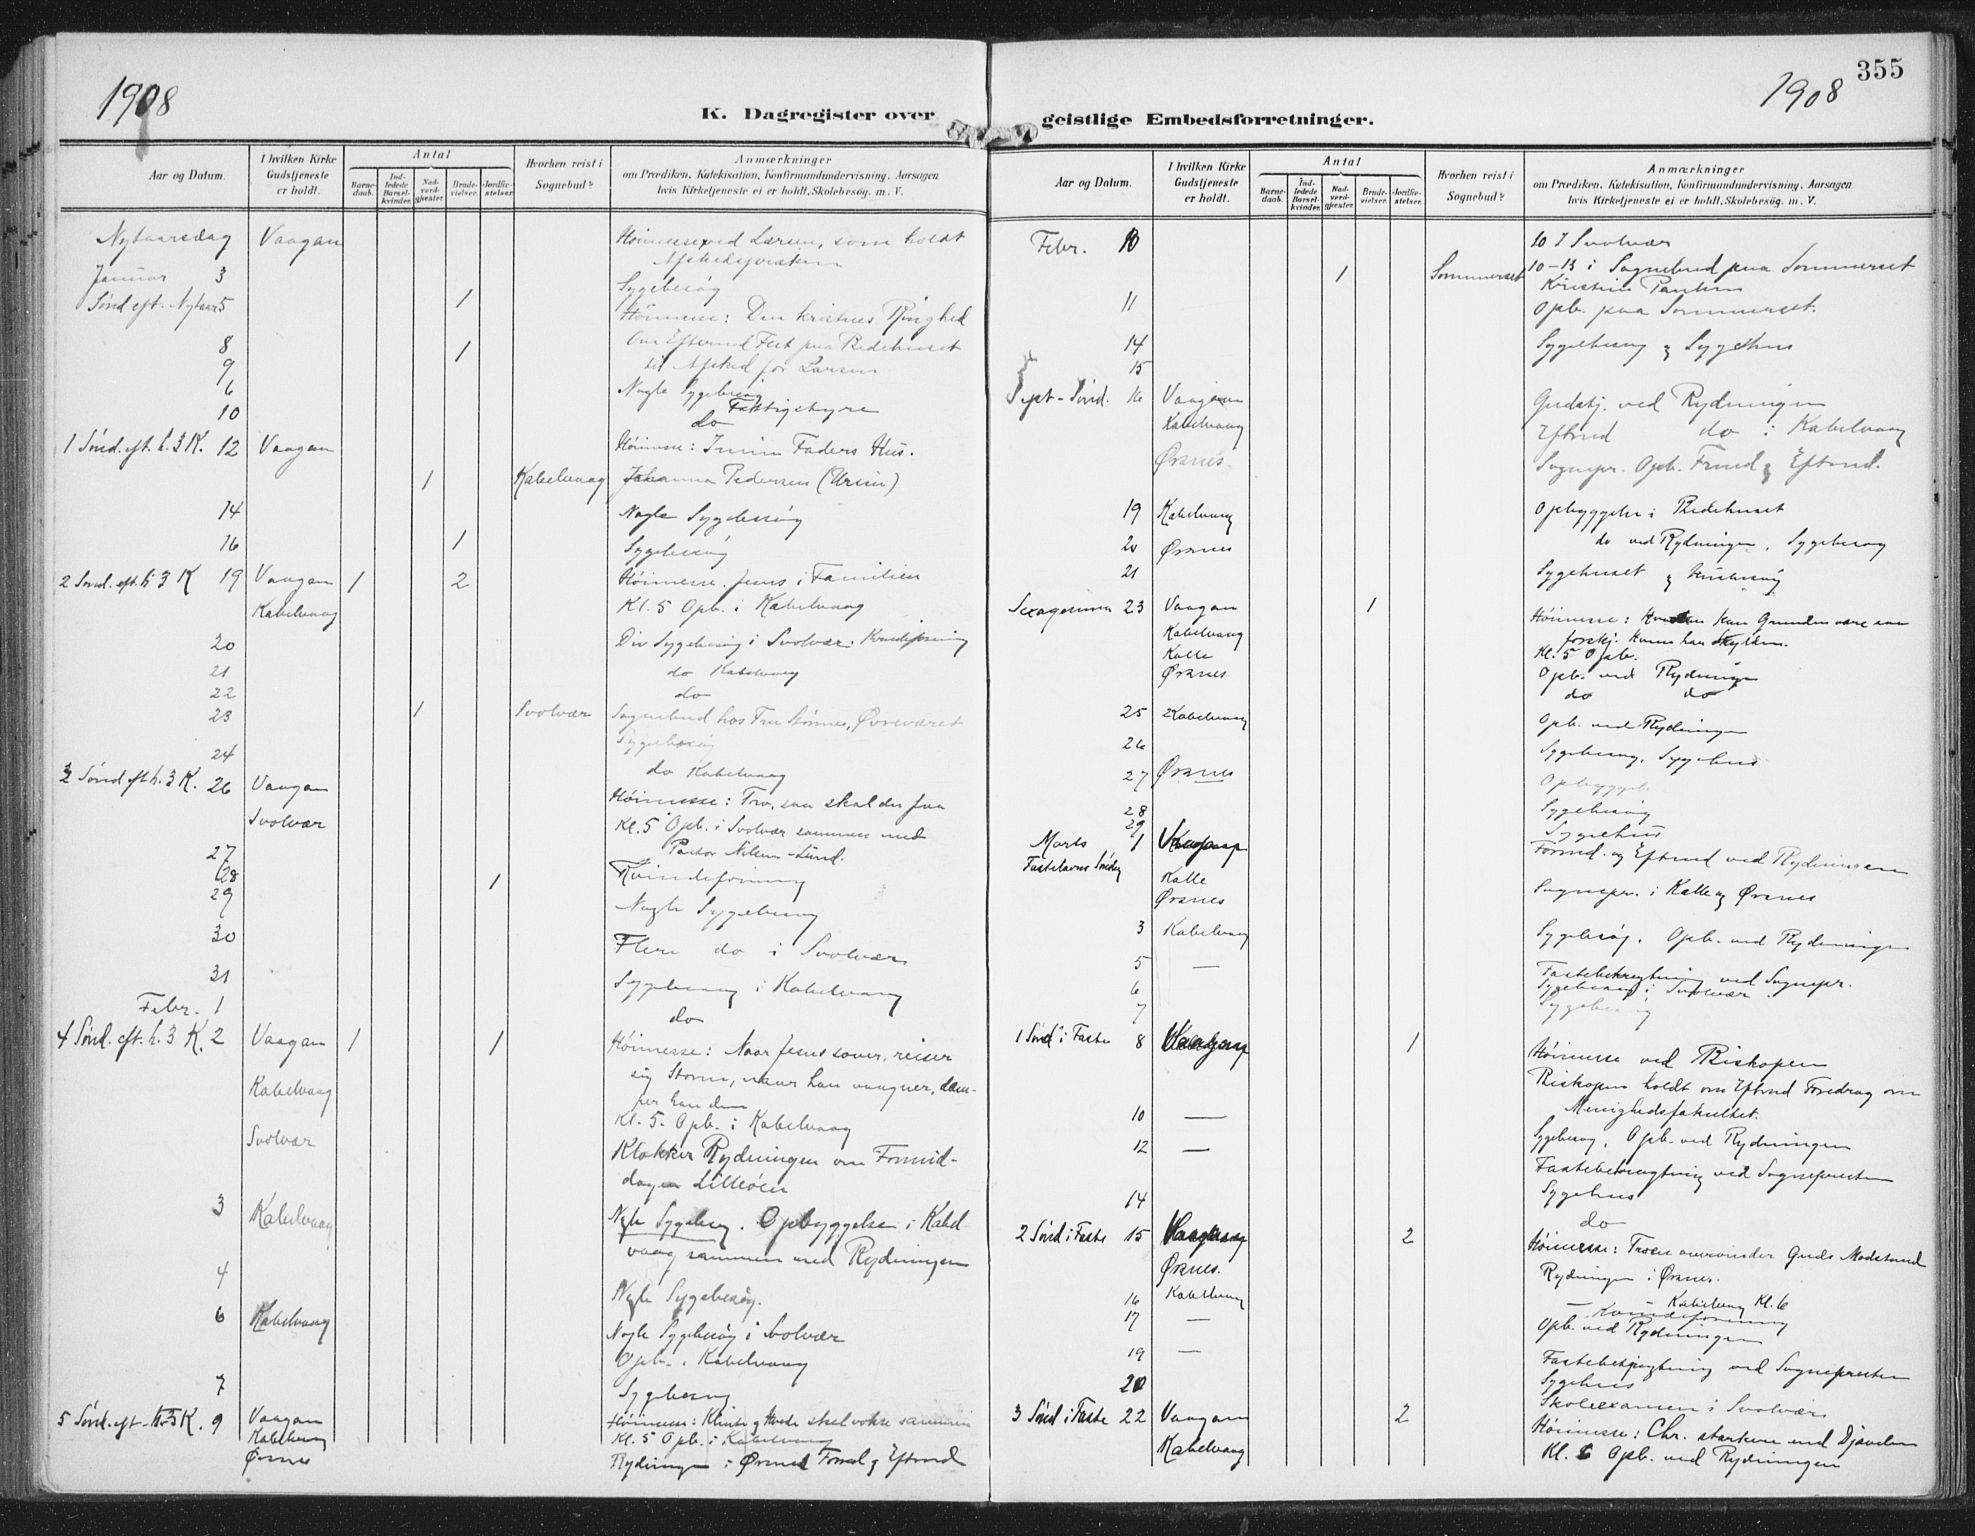 1908
K. Dagregister over
Aar og Datum.
I hvilken Kirke Gudstjeneste er holdt.
Antal
Barnedaab.
Indledede Barselkvinder.
Nadverdgjester.
Brudevielser.
Jordfæstelser
Hvorhen reist i Sognebud?
Anmærkninger
om Prædiken, Katekisation, Konfirmandundervisning, Aarsagen
hvis Kirketjeneste ei er holdt, Skolebesøg m. V.
Nytaarsdag Vaagan Høimesse ved Larsen, som holdt
Afskedspræken
Januar 3 Sygebesøg
Sønd eft. Nytaar 5 1 Høimesse: Den kristnes
8 1 Om Efterm Fest paa Bedehuset
9 til Afsked for Larsen
6 Nogle Sygebesøg
10 Fattigstyre
do
1 Sønd. eft. h. 3 K. 12 Vaagan Høimesse: I min Faders Hus.
1 Kabelvaag Johanna Pedersen (Ursin)
14 Nogle Sygebesøg
16 1 Sygebesøg
2 Sønd. eft. h 3 K 19 Vaagan 1 2 Høimesse. Jesus i Familien
Kabelvaag Kl. 5 Opb. i Kabelvaag
20 Div Sygebesøg i Svolvær. Kvindeforening
21 do Kabelvaag
22 do
23 1 Svolvær Sognebud hos Fru Størmes, Øvreværet
Sygebesøg
24 do Kabelvaag
3 Sønd eft h. 3 K. 26 Vaagan Høimesse: Tro, saa skal du faa
Svolvær Kl. 5 Opb. i Svolvær sammen med
Pastor Nilsen-Lund.
27
28 1 Kvindeforening
29 Nogle Sygebesøg
30 Flere do i Svolvær
31 Sygebesøg i Kabelvaag
Febr. 1 do
4 Sønd. eft. h. 3 K. 2 Vaagan 1 1 Høimesse: Naar Jesus sover, reiser
sig Storm, naar han vaagner, dæm-
per han den
Kabelvaag Kl. 5. Opb. i Kabelvaag
Svolvær Klokker Rydningen om Formid-
dagen Lilleöen
3 Kabelvaag Nogle Sygebesøg. Opbyggelse i Kabel-
vaag sammen med Rydningen
4 Nogle Sygebesøg.
6 Kabelvaag Nogle Sygebesøg i Svolvær
Opb. i Kabelvaag
7 Sygebesøg
5 Sønd. eft. h. 3 K. 9 Vaagan Høimesse: Klinte og Hvede skal vokse sammen
Kabelvaag Kl. 5 Opb. i Kabelvaag
Ørsnes Rydningen i Ørsnes Formd og Eftmd
355
1908
geistlige Embedsforretninger.
Aar og Datum.
I hvilken Kirke Gudstjeneste er holdt.
Antal
Barnedaab.
Indledede Barselkvinder.
Nadverdgjester.
Brudevielser.
Jordfæstelser.
Hvorhen reist i Sognebud?
Anmærkninger
om Prædiken, Katekisation, Konfirmandundervisning, Aarsagen
hvis Kirketjeneste ei er holdt, Skolebesøg m. V.
Febr. 10 10 I Svolvær
1 Sommerset 10-13 i Sognebud paa Sommerset
Kristine
11 Opb. paa Sommerset.
14 Sygebesøg og Sygehus
15
Sept-Sønd. 16 Vaagan Gudstj. ved Rydningen
Kabelvaag Eftmd do i Kabelvaag
Ørsnes Sognepr. Opb. Frmd og Eftmd.
19 Kabelvaag Opbyggelse i Bedehuset
20 Ørsnes do ved Rydningen, Sygebesøg
21 Sygehuset og Husbesøg
Sexagesima 23 Vaagan 1 Høimesse: kan Grunden være saa
forskj. Hvem har Skylden.
Kabelvaag Kl. 5 Opb.
Kalle Opb. ved Rydningen
Ørsnes do do
25 Kabelvaag Opb. ved Rydningen
26 Sygebesøg, Sygehus
27 Ørsnes Opbyggelse
28 Sygebesøg
29 Sygehus
Marts 1 Vaagan Formd. og Eftmd ved Rydningen
Fastelavns Søndag
Kalle
Ørsnes Sognepr. i Kalle og Ørsnes
3 Kabelvaag Sygebesøg. Opb. ved Rydningen
5 — Fastebetragtning ved Sognepr.
6 Sygebesøg i Svolvær
7 Sygebesøg
1 Sønd i Faste 8 Vaagan 1 Høimesse ved Biskopen
Biskopen holdt om Eftmd Foredrag om
Menighedsfakultet.
10 — Sygebesøg, Opb. ved Rydningen
12 — Fastebetragtning ved Sognepresten
14 Sygehus
do
2 Sønd i Faste 15 Vaagan 2 Høimesse: Troen overvinder Guds Modstand
Ørsnes. Rydningen i Ørsnes.
16 Kabelvaag — Kabelvaag Kl. 6
17 — Kvindeforening
Opb. ved Rydningen
19 — Fastebetragtning ved Sognepresten
20 Sygehus
Skoleexamen i Svolvær
3 Sønd i Faste 22 Vaagan 2 Høimesse: Chr. stærkere end Djævelen
Kabelvaag Kl. 6 Opb. ved Rydningen